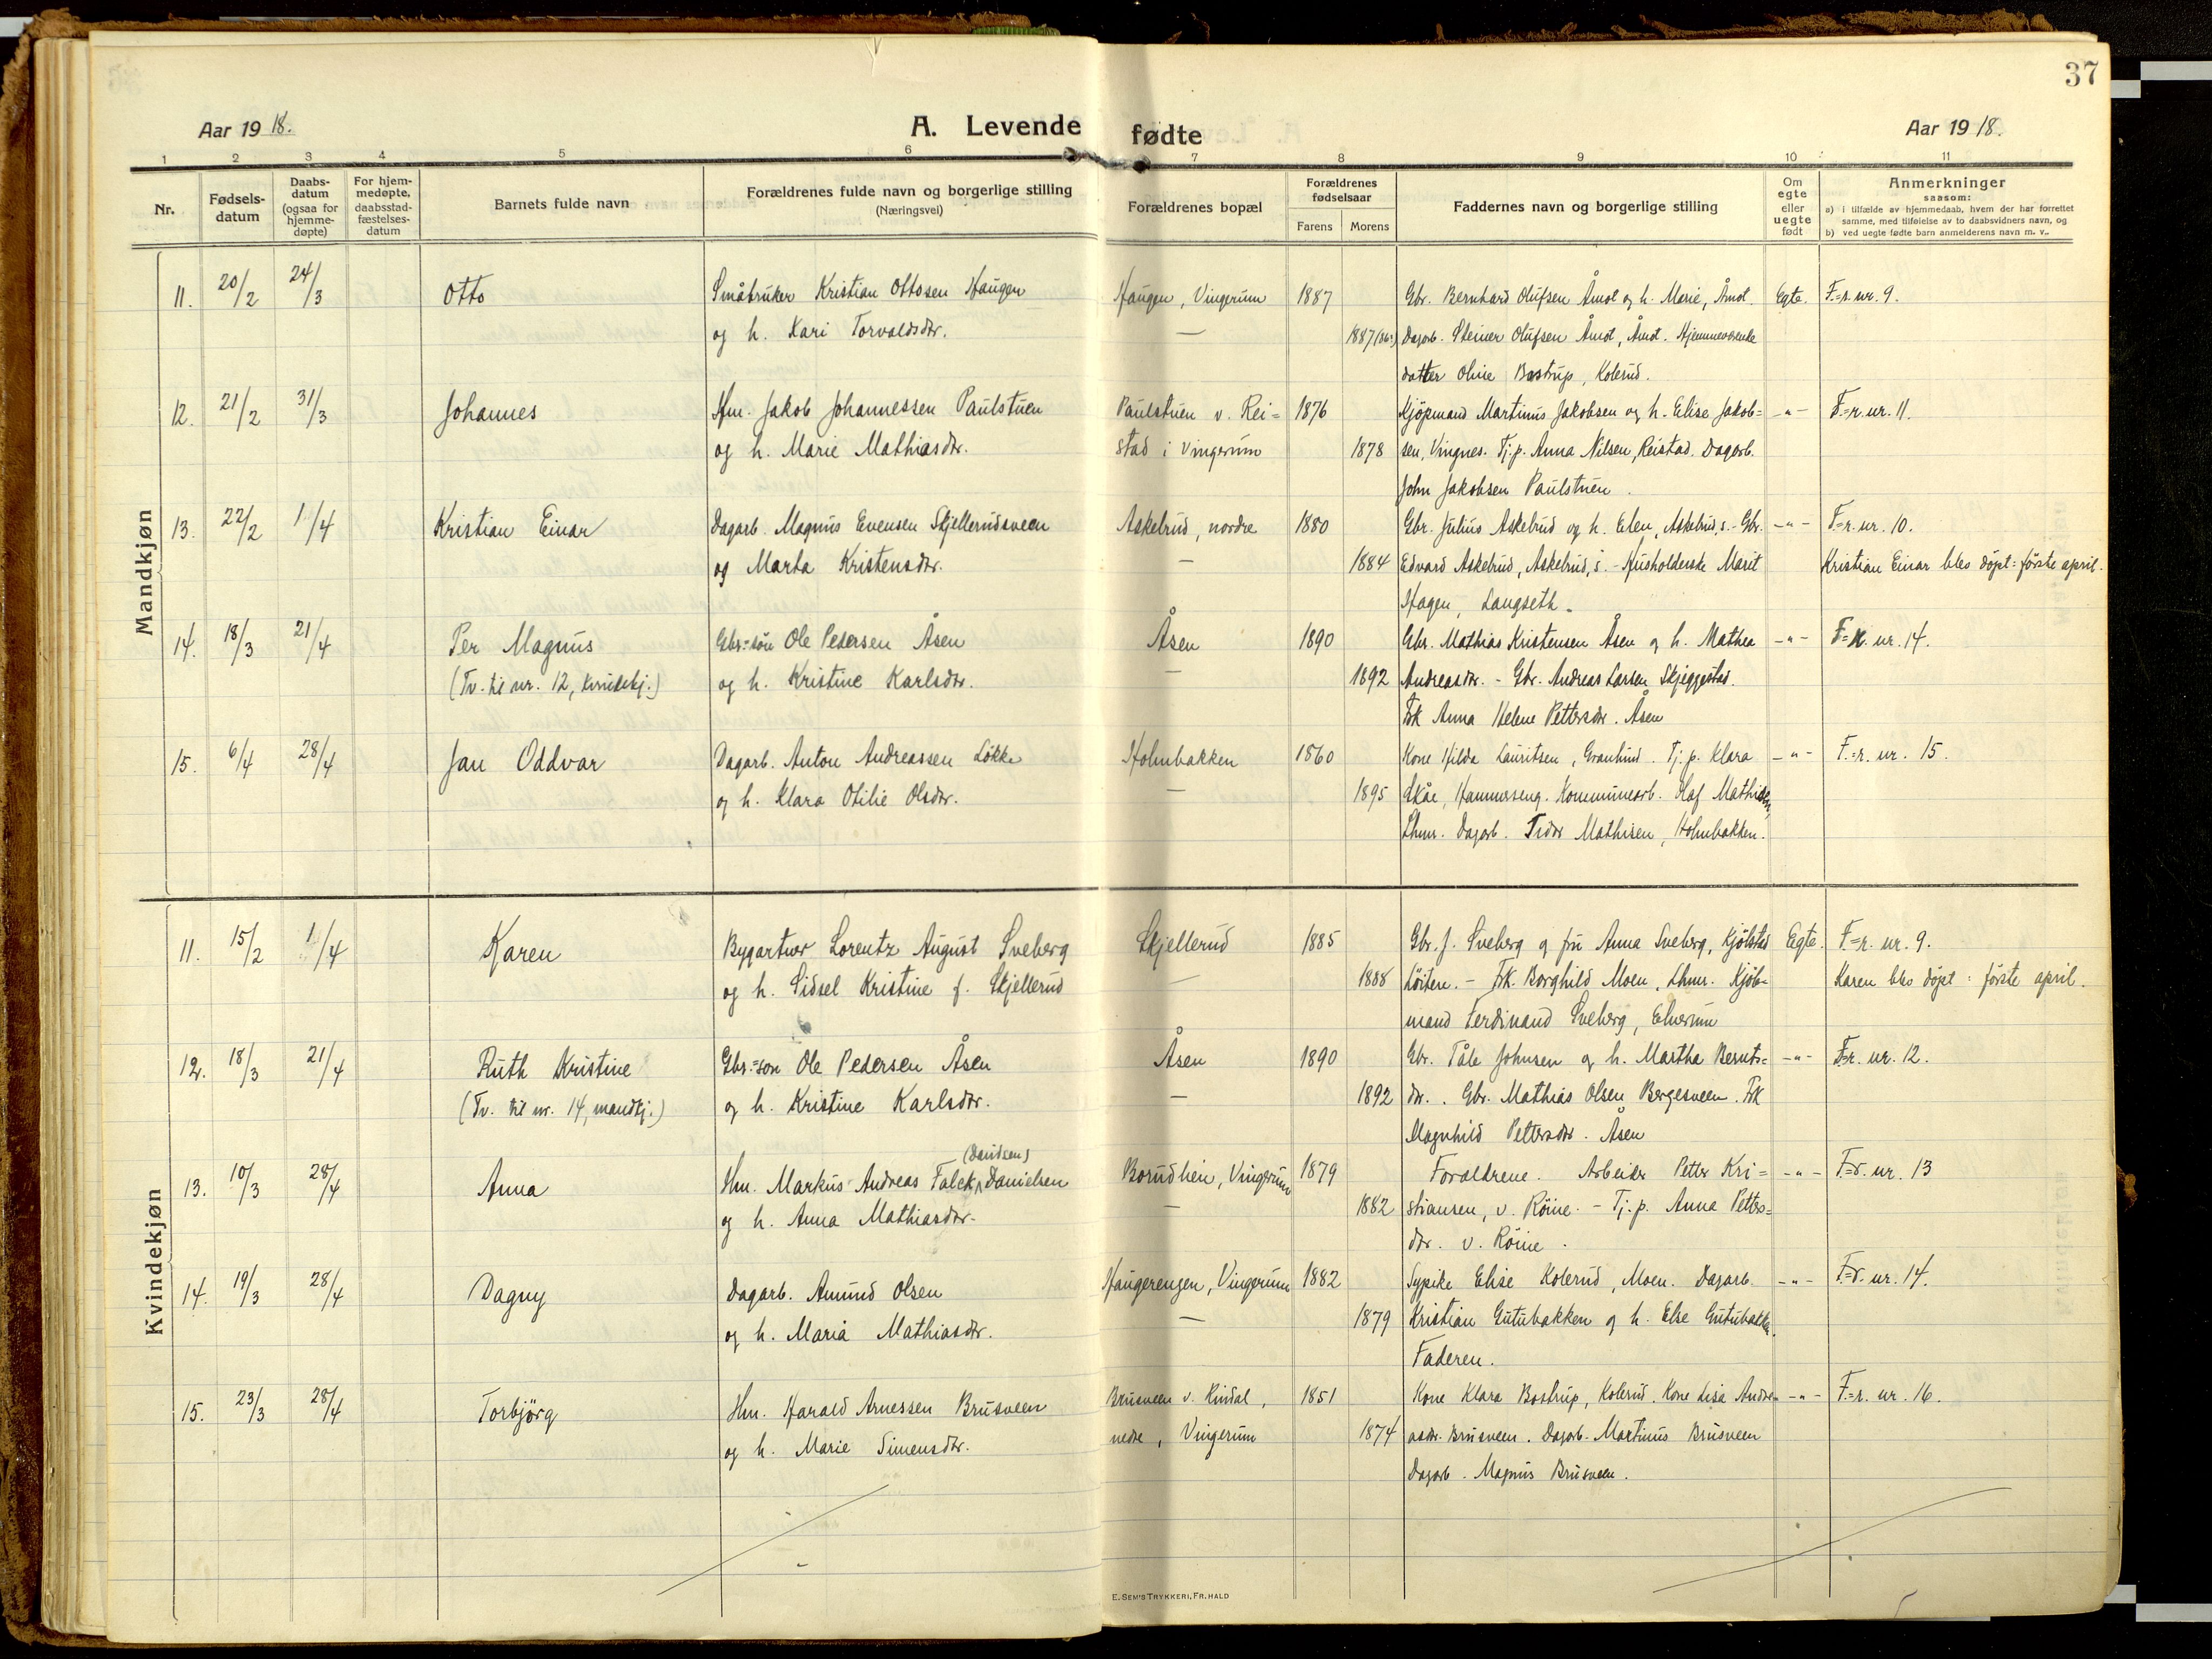 37
Aar 1918.
A. Levende fødte
Aar 1918.
1 2 3 4 5 6 7 8 9 10 11
Nr.
Fødsels-
datum
Daabs-
datum
(ogsaa for
hjemme-
døpte)
For hjem-
medøpte,
daabsstad-
fæstelses-
datum
Barnets fulde navn
Forældrenes fulde navn og borgerlige stilling
(Næringsvei)
Forældrenes bopæl
Forældrenes
fødselsaar
Farens Morens
Faddernes navn og borgerlige stilling
Om
egte
eller
uegte
født
Anmerkninger
saasom:
a) i tilfælde av hjemmedaab, hvem der har forrettet
samme, med tilføielse av to daabsvidners navn, og
b) ved uegte fødte barn anmelderens navn m. v..
Mandkjøn
11. 20/2 24/3 Otto Småbruker Kristian Ottosen Haugen Haugen, Vingerum 1887 Gbr. Bernhard Olufsen Åmot og h. Marie, Åmot. Egte. F.=r. nr. 9.
og h. Kari Torvaldsdtr. — 1887 Dagarb. Steiner Olufsen Åmot, Åmot. Hjemmeværende
datter Oline Bastrup, Kolerud.
12. 21/2 31/3 Johannes Hm. Jakob Johannessen Paulstuen Paulstuen v. Rei= 1876 Kjöpmand Martinus Jakobsen og h. Elise Jakob= -"- F.=r. nr. 11.
og h. Marie Mathiasdtr. stad i Vingerum 1878 sen, Vingnes. Tj.p. Anna Nilsen, Reistad. Dagarb.
John Jakobsen Paulstuen.
13. 22/2 1/4 Kristian Einar Dagarb. Magnus Evensen Skjellerudsveen Askelrud, nordre 1880 Gbr. Julius Askelrud og h. Elen, Askelrud, s. - Gbr. -"- F.=r. nr. 10.
og Marta Kristensdtr. — 1884 Edvard Askelrud, Askelrud, s. - Husholderske Marit Kristian Einar blev döpt: förste april.
Hagen, Langseth.
14. 18/3 21/4 Per Magnus Gbr.=sön Ole Pedersen Åsen Åsen 1890 Gbr. Mathias Kristensen Åsen og h. Mathea -"- F.=r. nr. 14.
(Tv. til nr. 12, kvindekj.) og h. Kristine Karlsdtr. — 1892 Andreasdtr. - Gbr. Andreas Larsen Skjeggestad.
Frk Anna Helene Pettersdtr. Åsen
15. 6/4 28/4 Jan Oddvar Dagarb. Anton Andreassen Løkke Holmbakken 1860 Kone Hilda Lauritsen, Granlund. Tj.p. Klara -"- F.=r. nr. 15.
og h. Klara Otilie Olsdtr. — 1895 Skåe, Hammerseng. Kommunearb. Olaf Mathisen,
Lhmr. Dagarb. Tidor Mathisen, Holmbakken.
Kvindekjøn
11. 15/2 1/4 Karen Bygartner Lorentz August Sveberg Skjellerud 1885 Gbr. J. Sveberg og fru Anna Sveberg, Kjölstad Egte. F.=r. nr. 9.
og h. Sidsel Kristine f. Skjellerud — 1888 Löiten. - Frk. Borghild Moen, Lhmr. Kjöb= Karen blev döpt: förste april.
mand Ferdinand Sveberg, Elverum
12. 18/3 21/4 Ruth Kristine Gbr.=sön Ole Pedersen Åsen Åsen 1890 Gbr. Tåle Johnsen og h. Martha Bernts= -"- F.=r. nr. 12.
(Tv. til nr. 14, mandkj.) og h. Kristine Karlsdtr. — 1892 dtr. . Gbr. Mathias Olsen Bergesveen. Frk
Magnhild Pettersdtr. Åsen
(Davidsen)
13. 10/3 28/4 Anna Hm. Markus Andreas Falck Danielsen Borudhein, Vingerum 1879 Forældrene. Arbeider Petter Kri= -"- F.=r. nr. 13
og h. Anna Mathiasdtr. — 1882 stiansen, v. Röine. - Tj.p. Anna Petters=
dtr. v. Röine.
14. 19/3 28/4 Dagny Dagarb. Amund Olsen Haugerengen, Vingerum 1882 Sypike Elise Kolerud, Moen. Dagarb. -"- F.=r. nr. 14.
og h. Maria Mathiasdtr. — 1879 Kristian Gutubakken og h. Else Gutubakken.
Faderen.
15. 23/3 28/4 Torbjörg Hm. Harald Arnessen Brusveen Brusveen v. Rindal, 1851 Kone Klara Bostrup, Kolerud. Kone Lisa Andre= -"- F.=r. nr. 16.
og h. Marie Simensdtr. nedre, Vingerum 1874 asdtr. Brusveen. Dagarb. Martinus Brusveen
Dagarb. Magnus Brusveen.
E. SEM'S TRYKKERI, FR.HALD